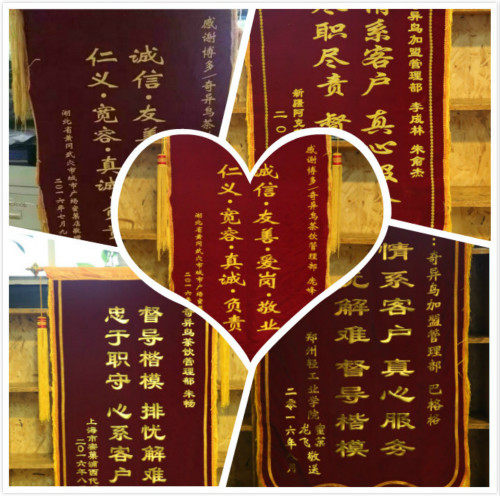 感谢博多一奇异鸟茶
诚信·友善
仁义·宽容·真诚
湖北省黄冈武穴市城市广场蜜菓店敬
二〇一六年七月九
奇异鸟加盟管理部 李成林 朱俞杰
情系客户 真心服
尽职尽责 督
新疆阿克
二〇
感谢博多一奇异鸟茶饮管理部
诚信·友善·爱岗·敬业
仁义·宽容·真诚·负责
湖北省黄冈武穴市城市广场蜜菓
二〇一六年
奇异鸟茶饮管理部 朱畅
督导楷模 排忧解难
忠于职守 心系客户
上海市蜜菓浦西代
二〇一六年八
：奇异鸟加盟管理部 巴裕杨
情系客户真心服务
忧解难 督导楷模
郑州轻工业学院 蜜菓
龙飞 敬送
二零一六年 月